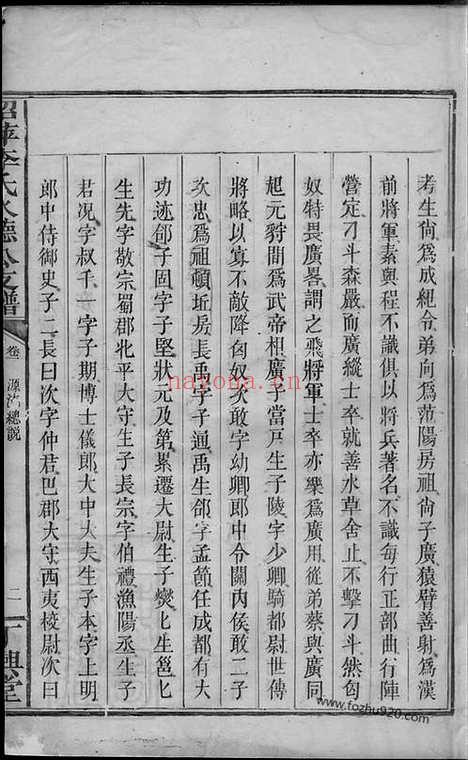 考生尙爲成紀令弟向爲范陽房祖尙子廣猿臂善射爲漢
前將軍素與程不識俱以將兵著名不識每行正部曲行陣
營定刁斗森嚴而廣縱士卒就善水草舍止不擊刁斗然匈
奴特畏廣畧謂之飛將軍士卒亦樂爲廣用從弟蔡與廣同
起元狩間爲武帝相廣子當戶生子陵字少卿騎都尉世傳
將略以寡不敵降匈奴次敢字幼卿郎中令關內侯敢二子
次忠爲祖頓坵房長禹字子通禹生郃字孟節任成都有大
功迹郃子固字子堅狀元及第累遷大尉生子爕匕生邕匕
生先字敬宗蜀郡北平大守生子長宗字伯禮漁陽丞生子
君况字叔千一字子期博士儀郎大中大夫生子本字上明
郎中侍御史子二長曰次字仲君巴郡大守西夷棱尉次曰
氏 公支譜
卷一
源流總說
二
興堂
nayona.cn
www.fozhu920.com